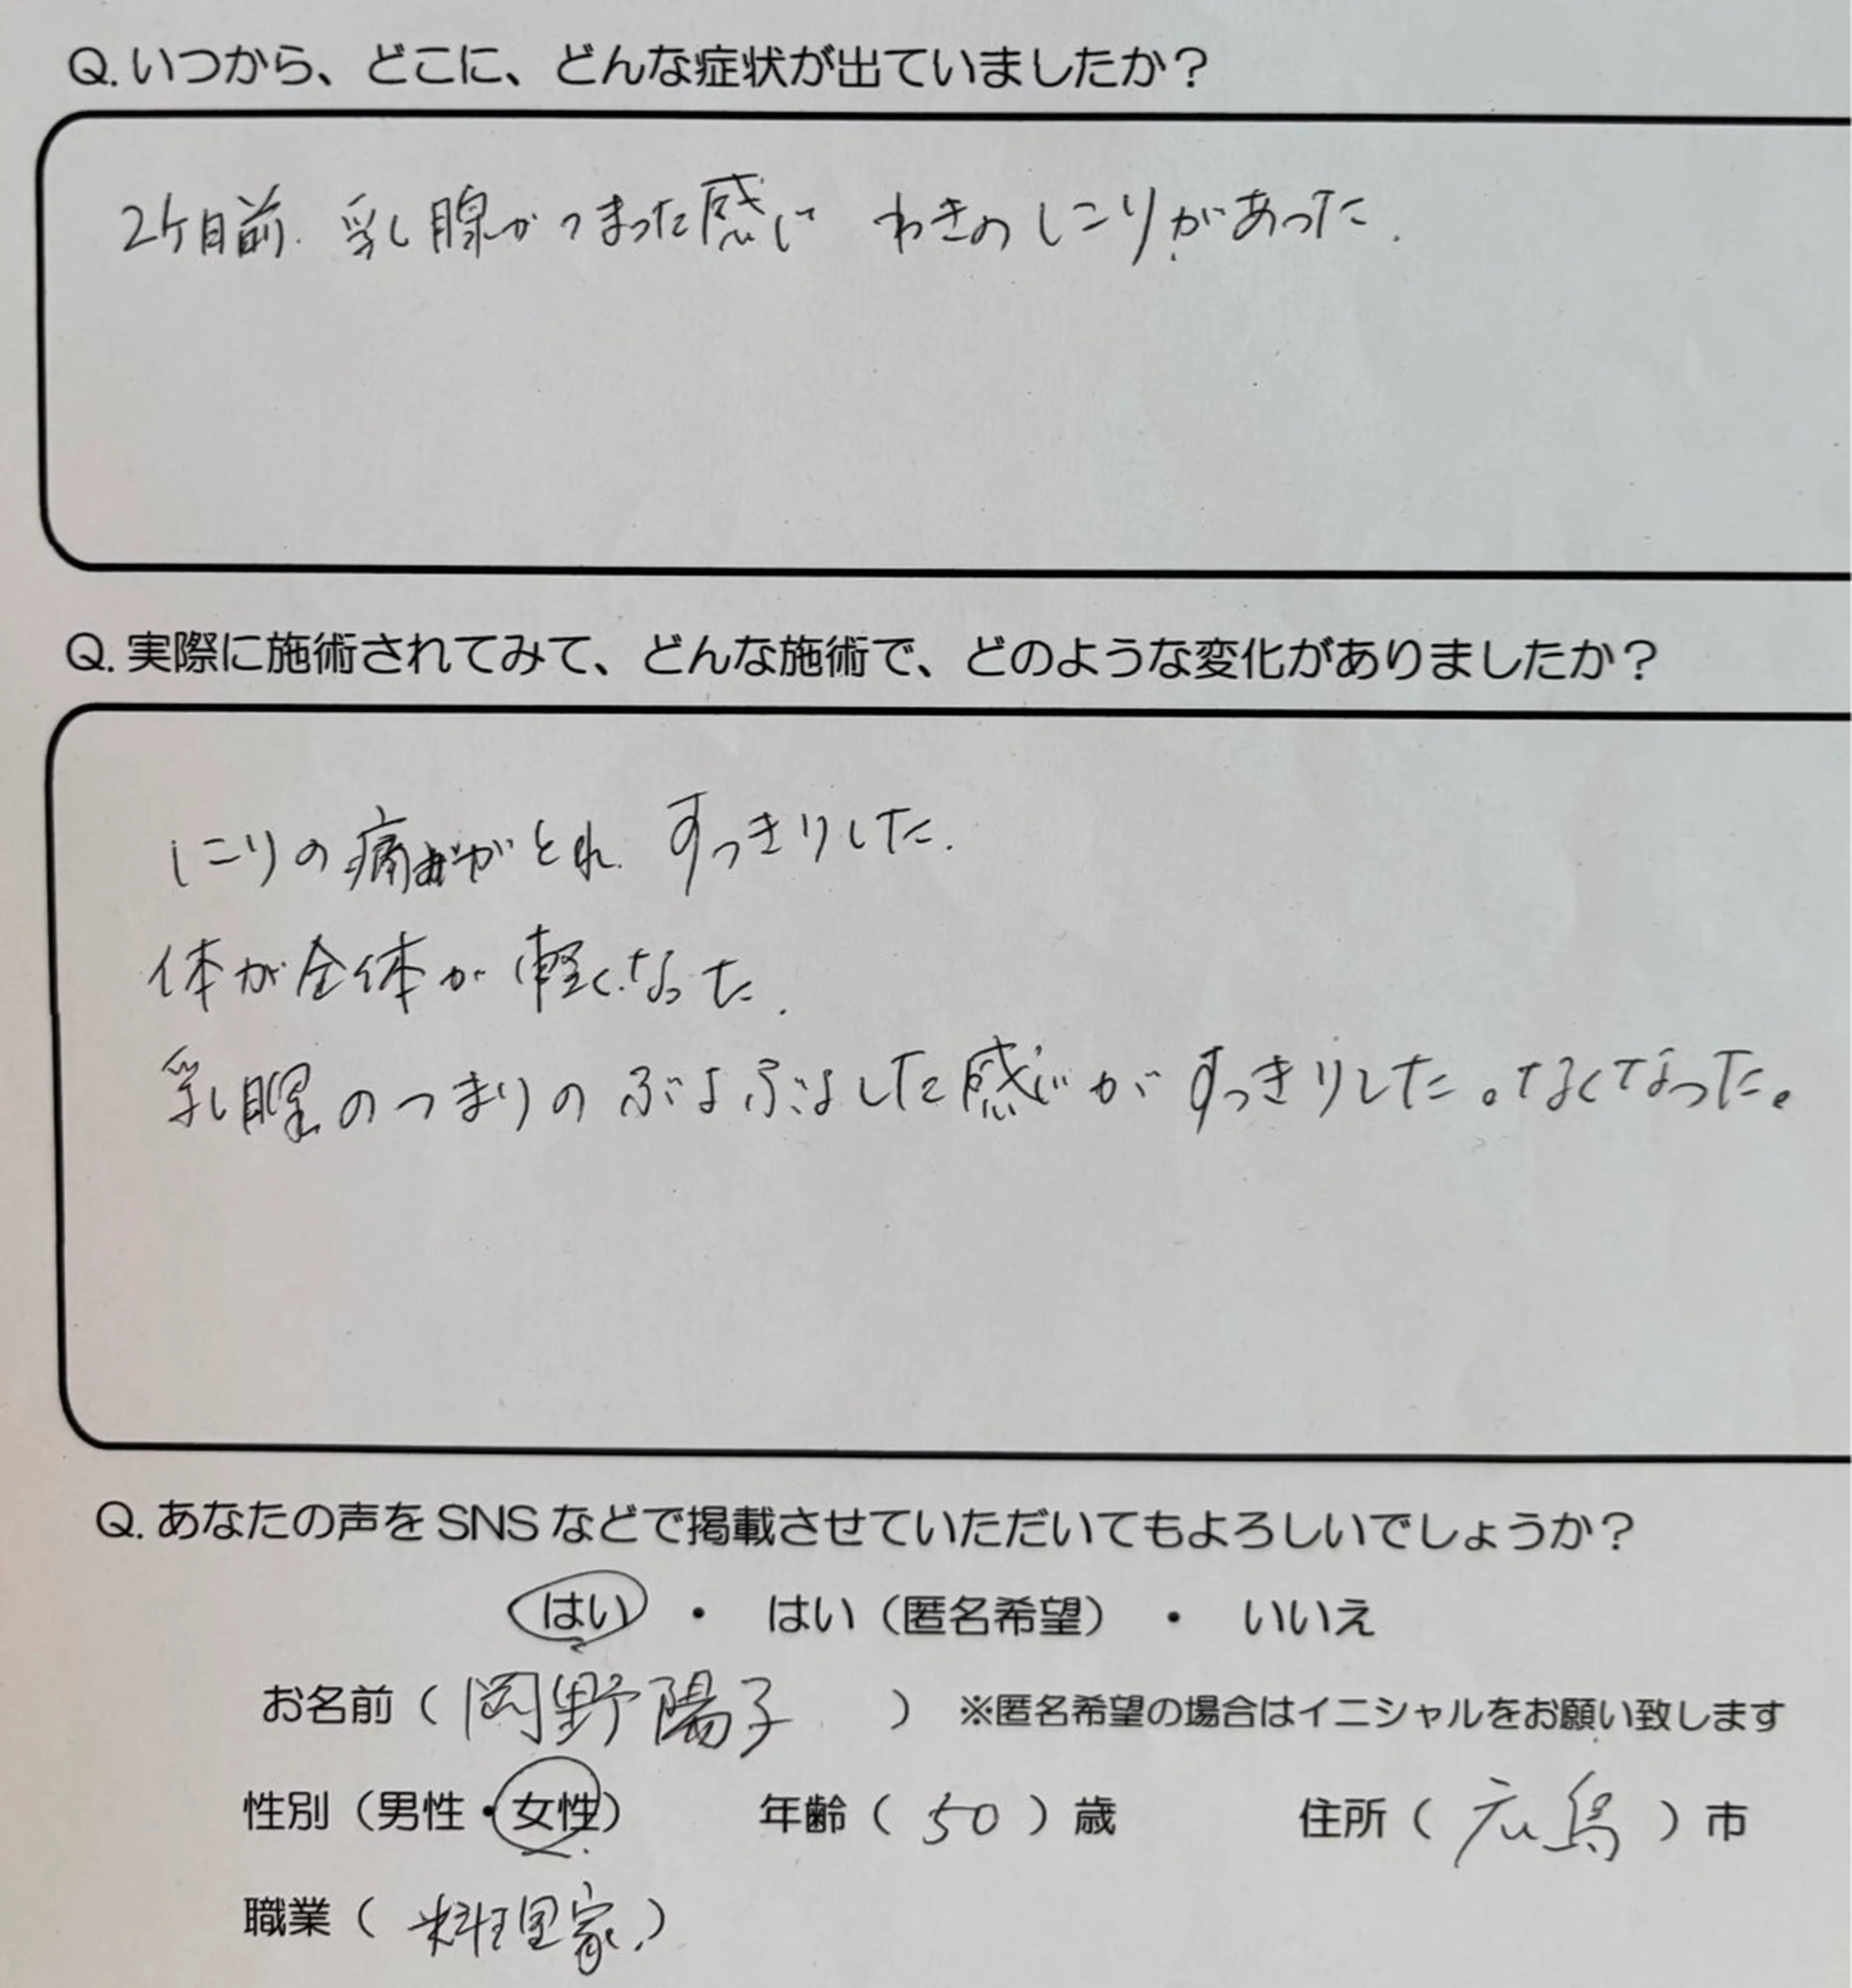 Q. いつから、どこに、どんな症状が出ていましたか？
2ヶ月前. 乳腺がつまった感じ わきのしこりがあった.
Q. 実際に施術されてみて、どんな施術で、どのような変化がありましたか？
しこりの痛みがとれ. すっきりした.
体が全体が軽くなった.
乳腺のつまりのぶよぶよした感じがすっきりした。なくなった。
Q. あなたの声を SNS などで掲載させていただいてもよろしいでしょうか？
はい ・ はい（匿名希望） ・ いいえ
お名前（岡野陽子） ※匿名希望の場合はイニシャルをお願い致します
性別（男性・女性） 年齢（50）歳 住所（広島）市
職業（料理家.）